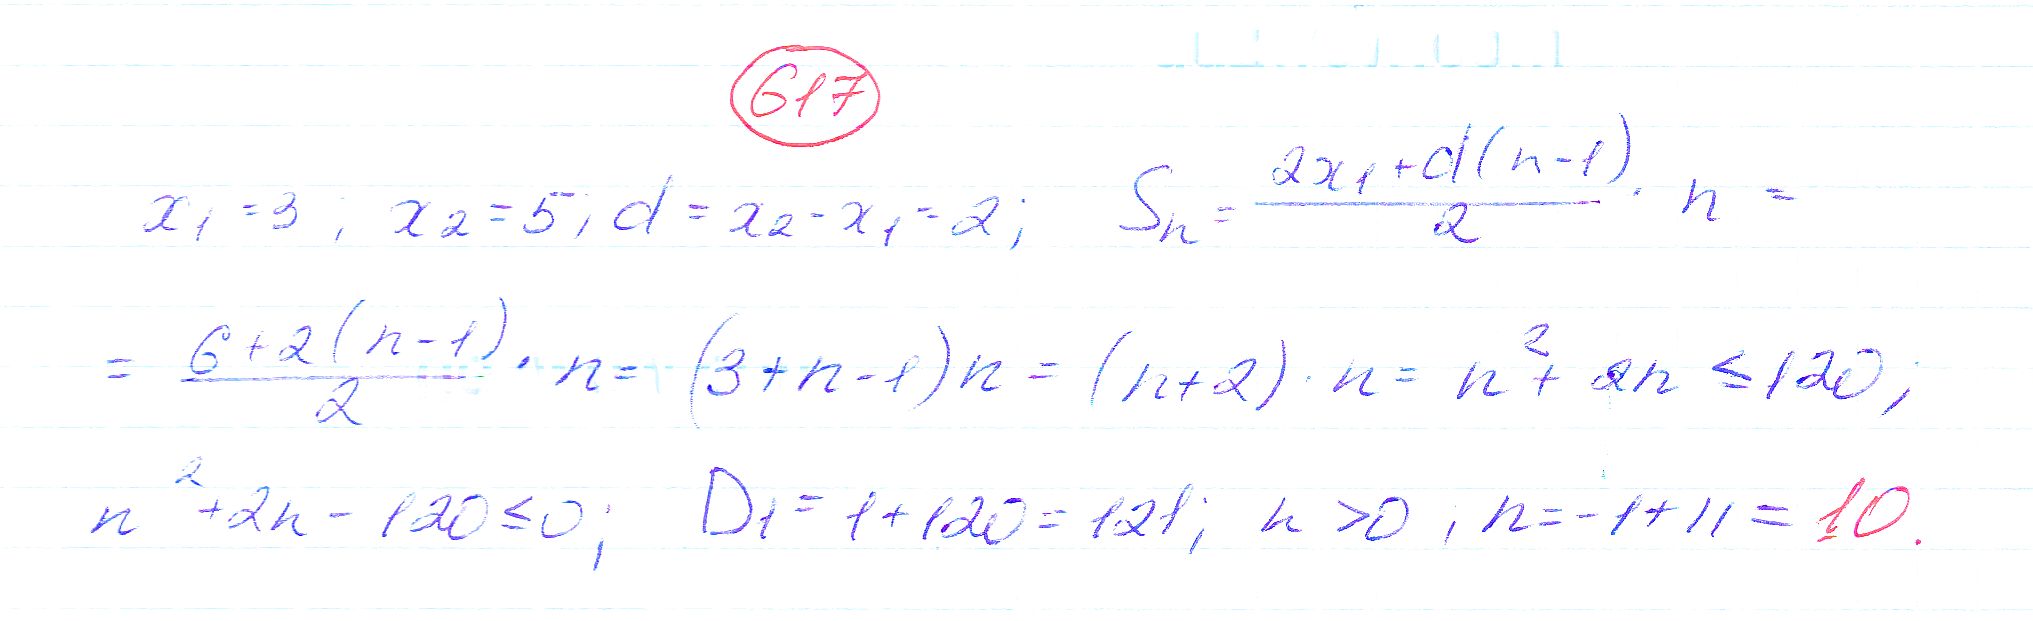 617
x₁ = 3; x₂ = 5; d = x₂ - x₁ = 2; Sₙ = (2x₁ + d(n-1))/2 · n =
= (6 + 2(n-1))/2 · n = (3 + n - 1)n = (n+2) · n = n² + 2n ≤ 120;
n² + 2n - 120 ≤ 0; D₁ = 1 + 120 = 121; n > 0, n = -1 + 11 = 10.